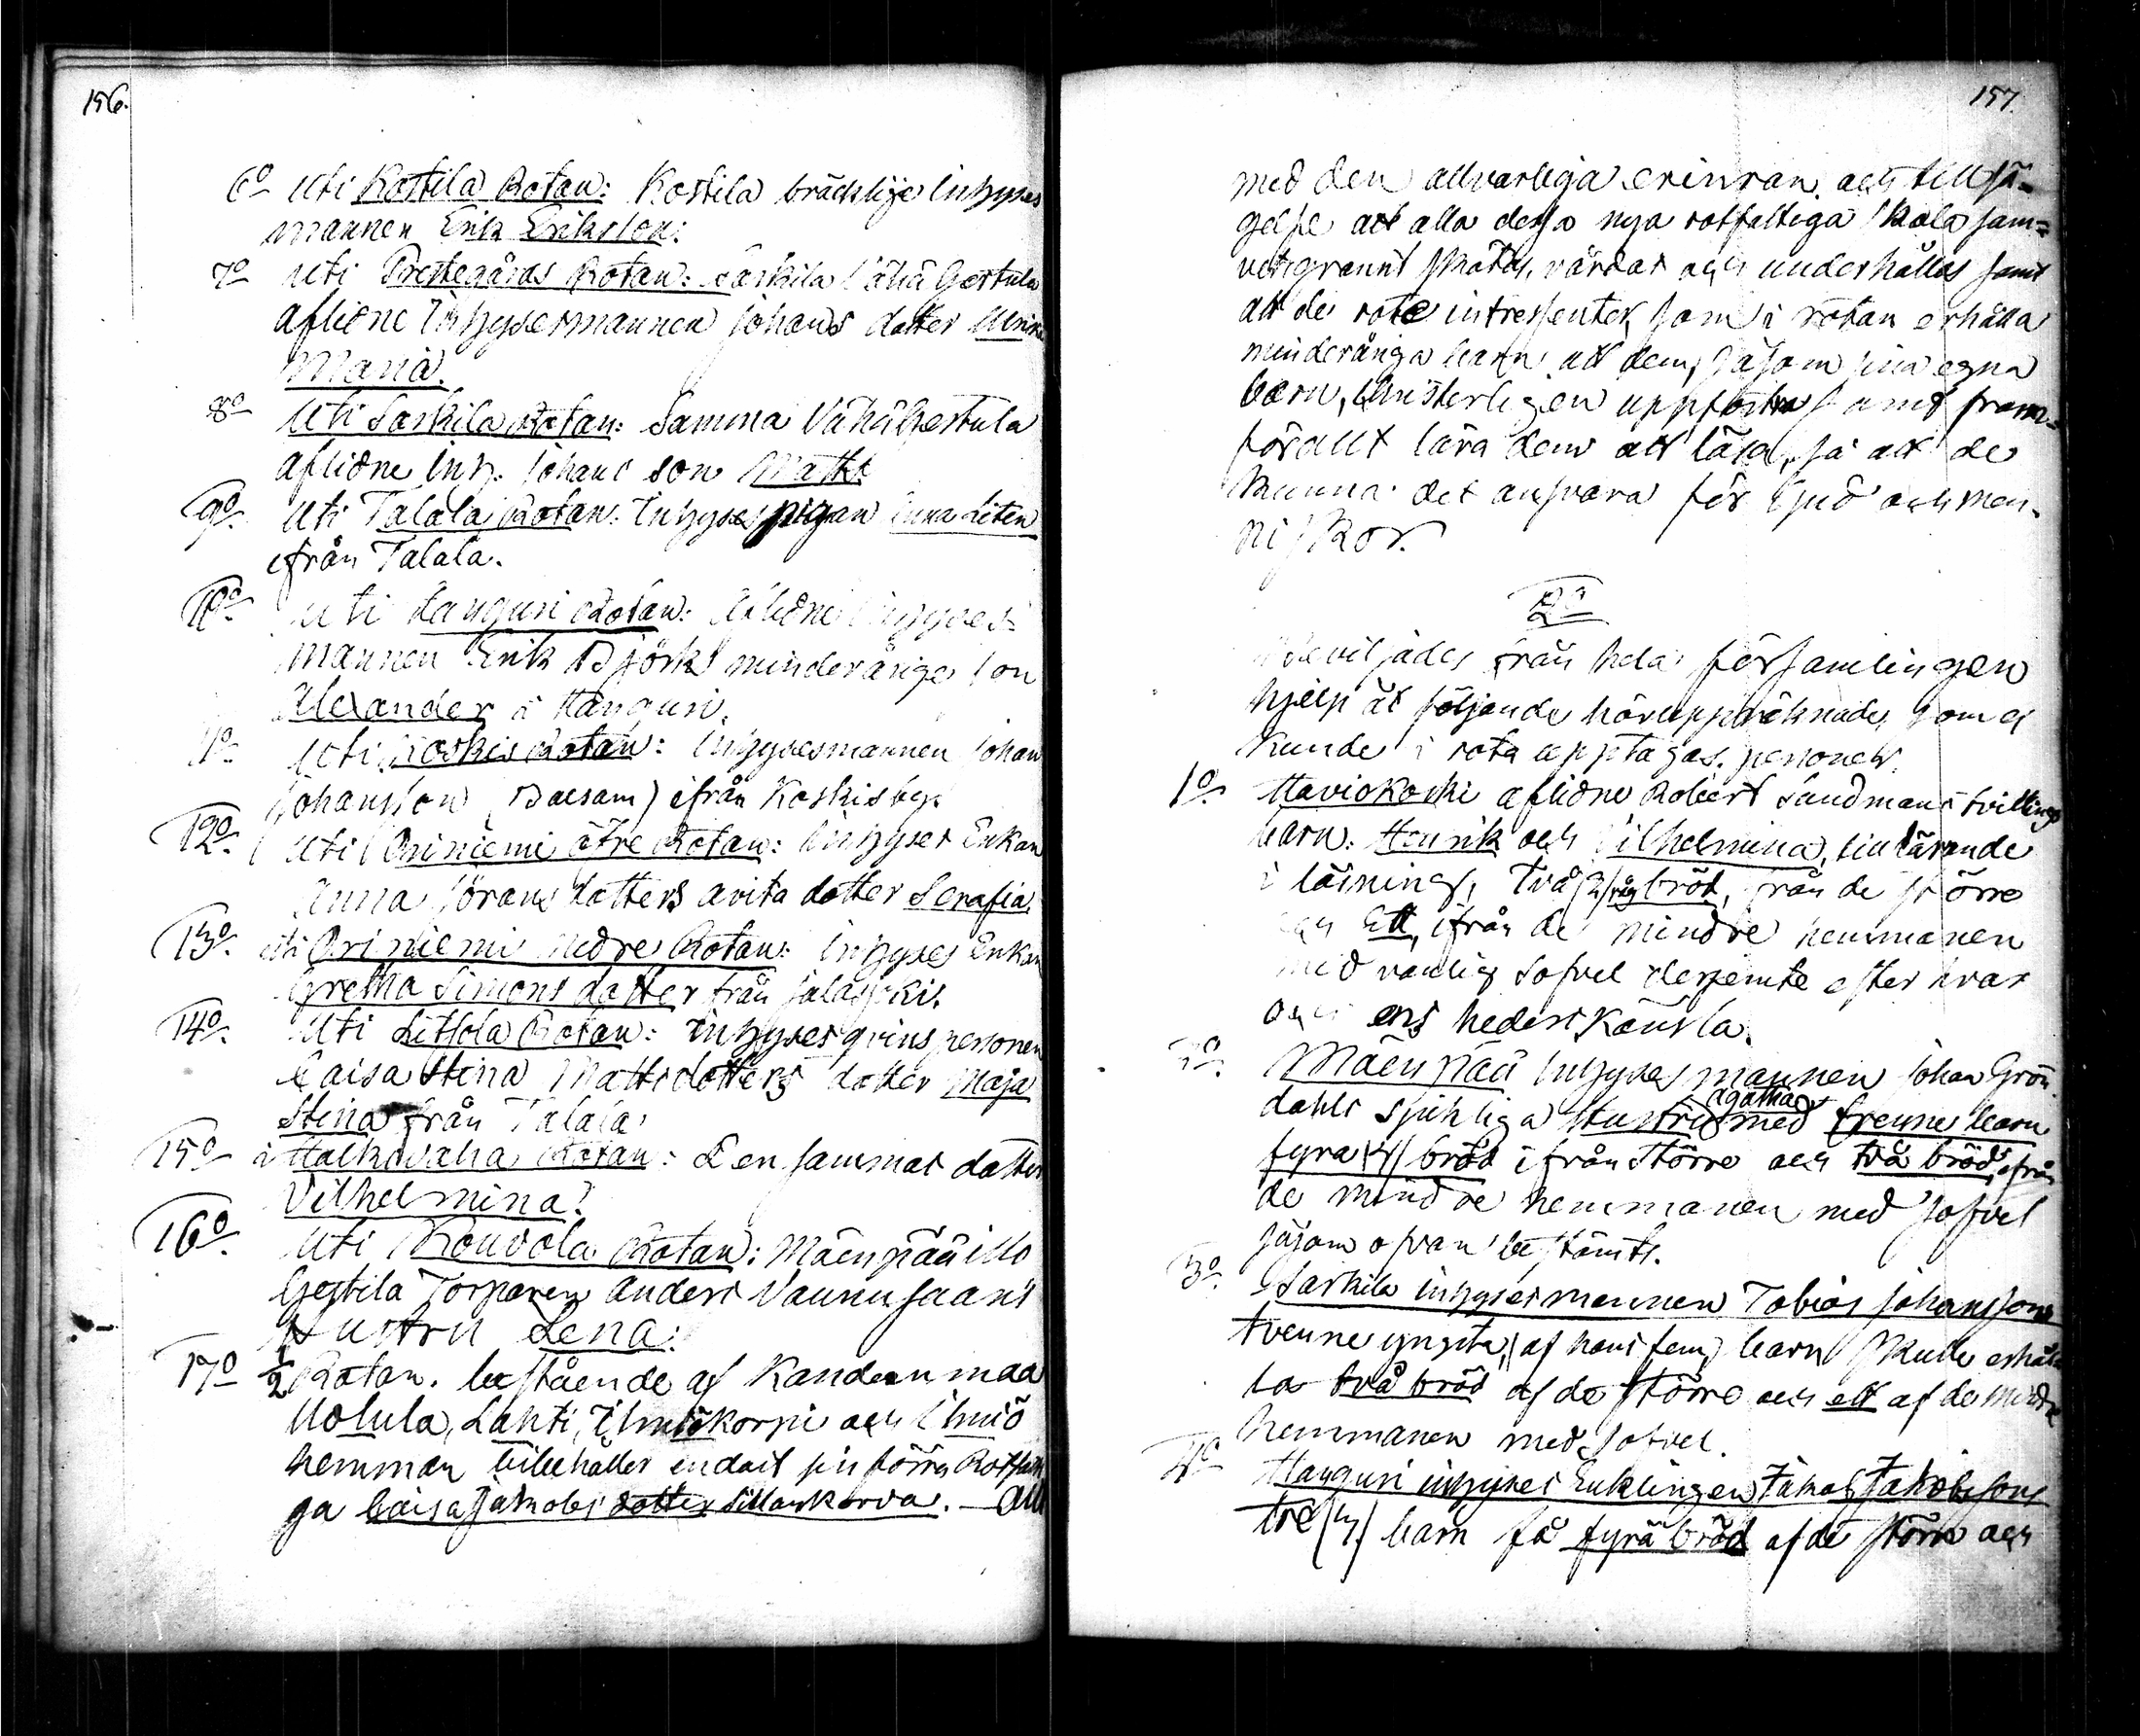 156.
6º Uti Kostila Rotan: Kostila bräcklige Inhyses
mannen Erik Eriksson:
7º Uti Prestegårds Rotan: Särkilä Vähä Gestula
aflidne Inhysesmannen Johans dotter
Maria.
8º Uti Särkilä Rotan: Samma Vähägestula
aflidne Inh: Johans son Matts
9º Uti Talala Rotan: Inhysespigan Anna Liten
ifrån Talala.
10º Uti Hanguri Rotan: Aflidne Inhyses
mannen Erik Björks minderårige son
Alexander i Hanguri.
11º Uti Koskis Rotan: Inhysesmannen Johan
Johansson (Balsam) ifrån Koskis by.
12º Uti Oriniemi öfre Rotan: Inhyses Enkan
Anna Jörans dotters oäkta dotter Serafia.
13º Uti Oriniemi nedre Rotan: Inhyses Enkan
Gretha Simons dotter från Jalasjoki.
14º Uti Littola Rotan: Inhyses qvinspersonen
Caisa Stina Mattsdotters dotter Maja
Stina från Talala
15º i Halkivaha Rotan: Den sammas dotter
Vilhelmina.
16º Uti Kouvola Rotan: Mäenpää
Torparen Anders
hustru Lena:
17º ½ Rotan. bestående af Kandenmaa
Uotula, Lahti, Ilmiskorpi och Ilmiö
hemman bibehåller endast sin förra Rotfatti
ga Caisa Jakobs dotter Sillankorva. — All
157.
med den allvarliga erinran och tillsä-
gelse att alla dessa nya rotfattiga skola sam=
vetsgrannt skötas, vårdas och underhållas samt
att de rote intressenter, som i rotan erhålla
minderåriga barn, att dem, såsom sina egna
barn, Christerligen uppfostra samt fram-
förallt lära dem att läsa, så att de
kunna det ansvara för Gud och men-
niskor.
2º
Beviljades från hela församlingen
hjelp åt följande häruppräknade, som ej
kunde i rota upptagas, personer.
1º Haviokoski aflidne Robert Sandmans tvillinge
barn: Henrik och Vilhelmina,
i läsning, två (2) rågbröd, från de större
och Ett, ifrån de mindre hemmanen
med vanlig Sofvel derjemte efter hvar
och ens hederskänsla.
2º Mäenpää Inhyses mannen Johan Grön
dahls sjukliga hustru Agatha med trenne barn
fyra (4) bröd ifrån större och två bröd ifrån
de mindre hemmanen med Sofvel
såsom ofvan bestämts.
3º Särkilä inhysesmannen Tobias Johanssons
tvenne yngsta, (af hans fem) barn skulle erhål
la två bröd af de större och ett af de mindre
hemmanen med Sofvel.
4º Hanguri inhyses Enklingen Jakob Jakobssons
tre (3) barn få fyra bröd af de större och